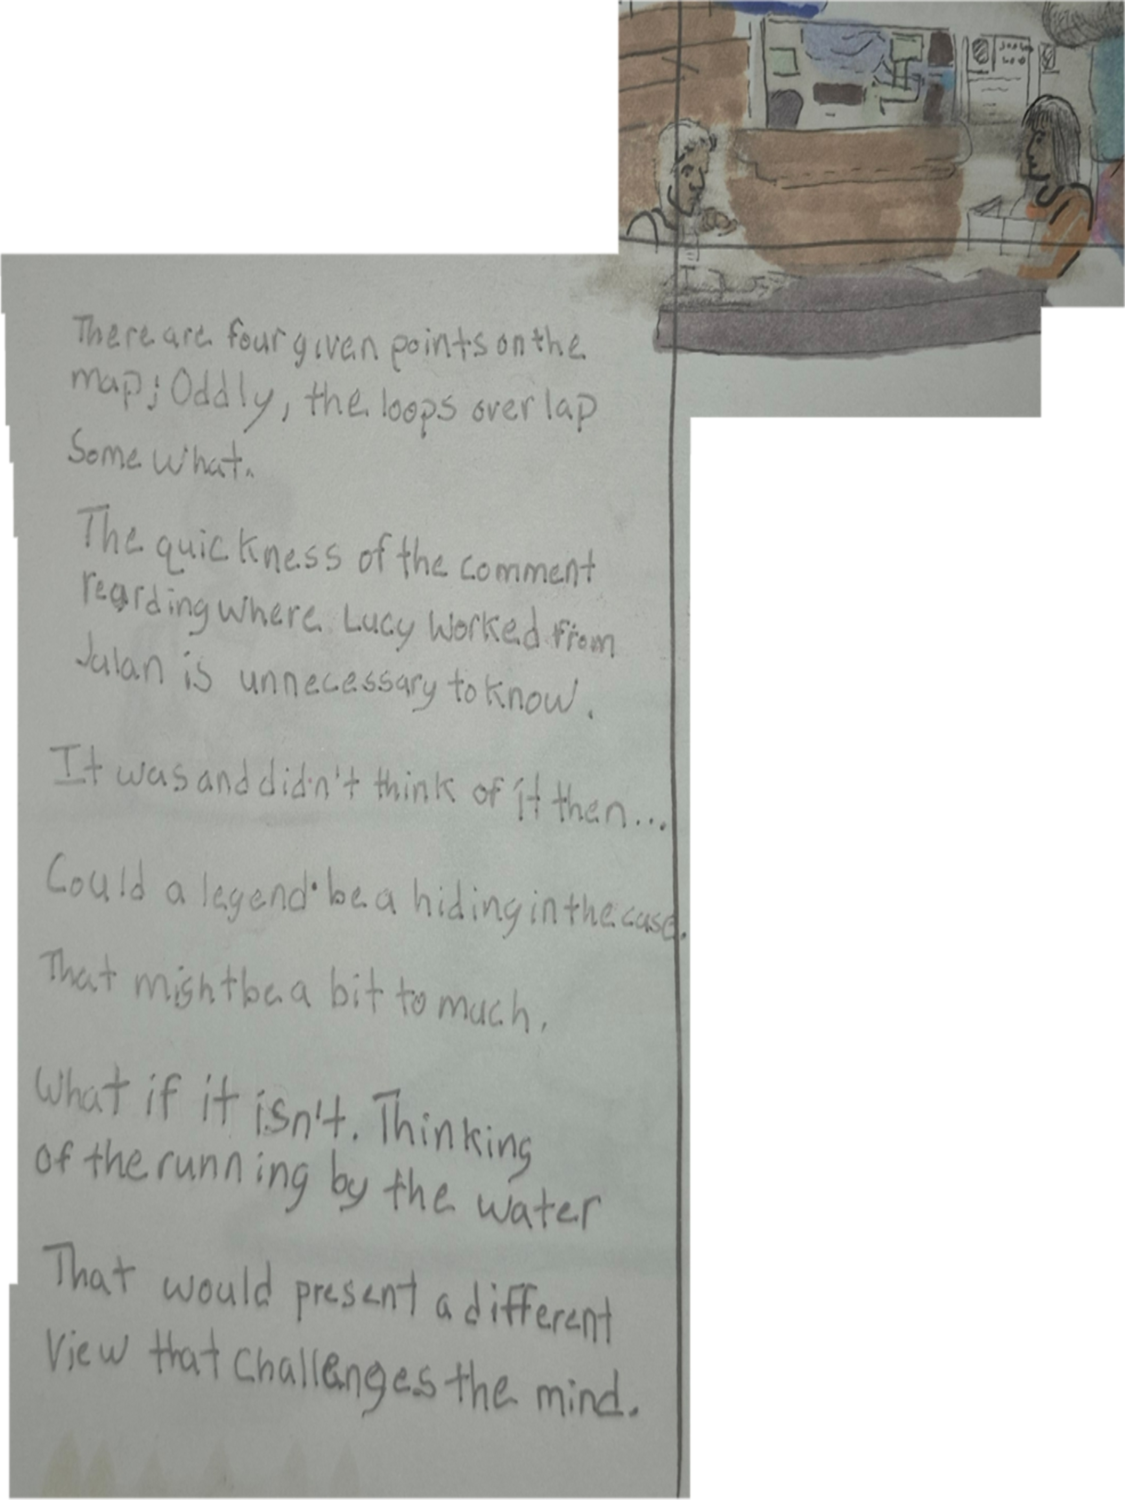 There are four given points on the
map; Oddly, the loops overlap
Some what.
The quickness of the comment
regrding where Lucy worked from
Julan is unnecessary to know.
It was and didn't think of it then...
Could a legend be a hiding in the case.
That might be a bit to much.
What if it isn't. Thinking
of the running by the water
That would present a different
View that challenges the mind.